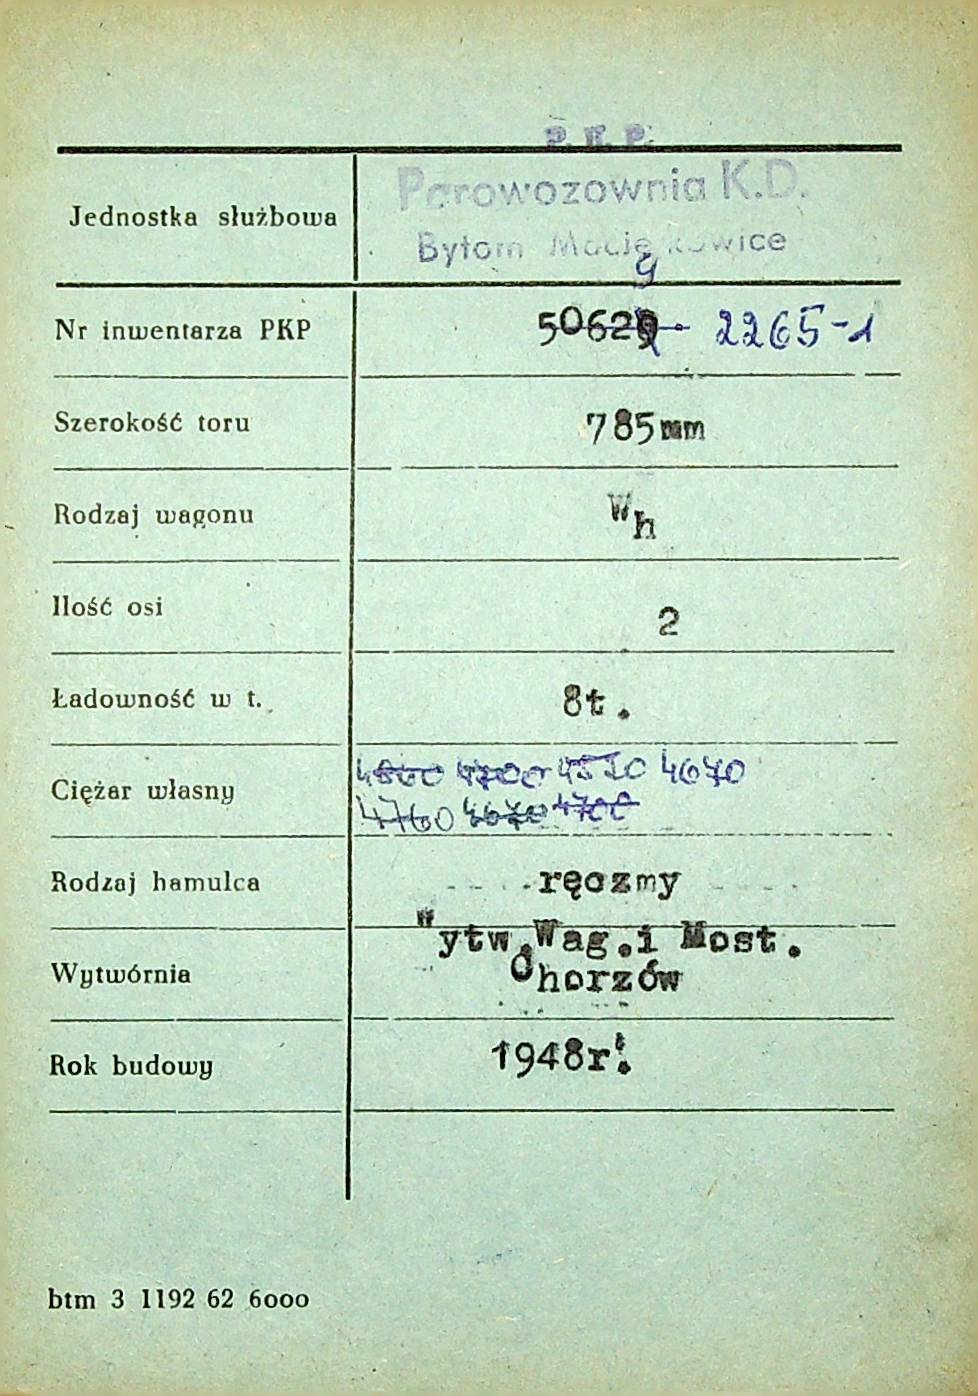 P. K. P.
Parowozownia K.D.
Jednostka służbowa
Bytom Macie kowice
Nr inwentarza PKP 5062 9 2265-1
Szerokość toru 785mm
Rodzaj wagonu Wh
Ilość osi 2
Ładowność w t. 8t.
Ciężar własny 4700 4670
4760 4670 4700
Rodzaj hamulca ręczmy
Wytw.Wag.i Most.
Wytwórnia Chorzów
Rok budowy 1948r.
btm 3 1192 62 6000